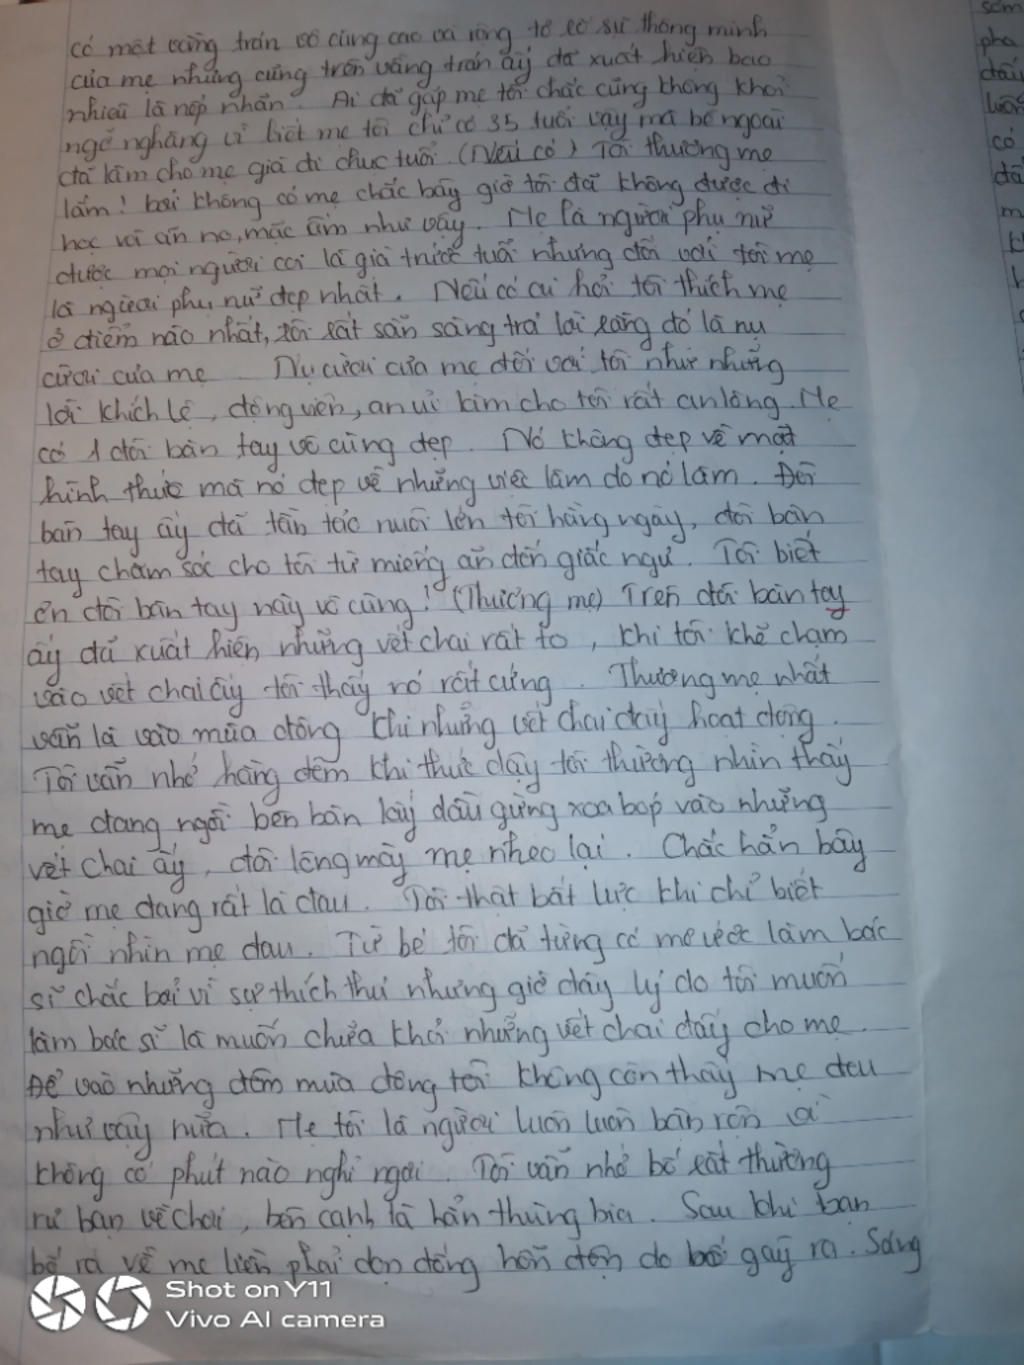 có một vầng trán vô cùng cao và rộng tỏ rõ sự thông minh
của mẹ nhưng cũng trên vầng trán ấy đã xuất hiện bao
nhiêu là nếp nhăn. Ai đã gặp mẹ tôi chắc cũng không khỏi
ngỡ nghàng vì biết mẹ tôi chỉ có 35 tuổi vậy mà bề ngoài
đã làm cho mẹ già đi chục tuổi (Nếu có) Tôi thương mẹ
lắm! bởi không có mẹ chắc bây giờ tôi đã không được đi
học và ăn no, mặc ấm như vậy. Mẹ là người phụ nữ
được mọi người coi là già trước tuổi nhưng đối với tôi mẹ
là người phụ nữ đẹp nhất. Nếu có ai hỏi tôi thích mẹ
ở điểm nào nhất, tôi rất sẵn sàng trả lời rằng đó là nụ
cười của mẹ. Nụ cười của mẹ đối với tôi như những
lời khích lệ, động viên, an ủi làm cho tôi rất an lòng. Mẹ
có 1 đôi bàn tay vô cùng đẹp. Nó không đẹp về mặt
hình thức mà nó đẹp về những việc làm do nó làm. Đôi
bàn tay ấy đã tần tảo nuôi lớn tôi hằng ngày, đôi bàn
tay chăm sóc cho tôi từ miếng ăn đến giấc ngủ. Tôi biết
ơn đôi bàn tay này vô cùng! (Thương mẹ) Trên đôi bàn tay
ấy đã xuất hiện những vết chai rất to, khi tôi khẽ chạm
vào vết chai ấy tôi thấy nó rất cứng. Thương mẹ nhất
vẫn là vào mùa đông khi những vết chai dấy hoạt động.
Tôi vẫn nhớ hằng đêm khi thức dậy tôi thường nhìn thấy
mẹ đang ngồi bên bàn lấy dầu gừng xoa bóp vào những
vết chai ấy, đôi lông mày mẹ nheo lại. Chắc hẳn bây
giờ mẹ đang rất là đau. Tôi thật bất lực khi chỉ biết
ngồi nhìn mẹ đau. Từ bé tôi đã từng có mơ ước làm bác
sĩ chắc bởi vì sự thích thú nhưng giờ đây lý do tôi muốn
làm bác sĩ là muốn chữa khỏi những vết chai đấy cho mẹ.
Để vào những đêm mùa đông tôi không còn thấy mẹ đau
như vậy nữa. Mẹ tôi là người luôn luôn bận rộn và
không có phút nào nghỉ ngơi. Tôi vẫn nhớ bố rất thường
rủ bạn về chơi, bên cạnh là hẳn thùng bia. Sau khi bạn
bố ra về mẹ liền phải dọn đống hỗn độn do bố gây ra. Sáng
Shot on Y11
Vivo AI camera